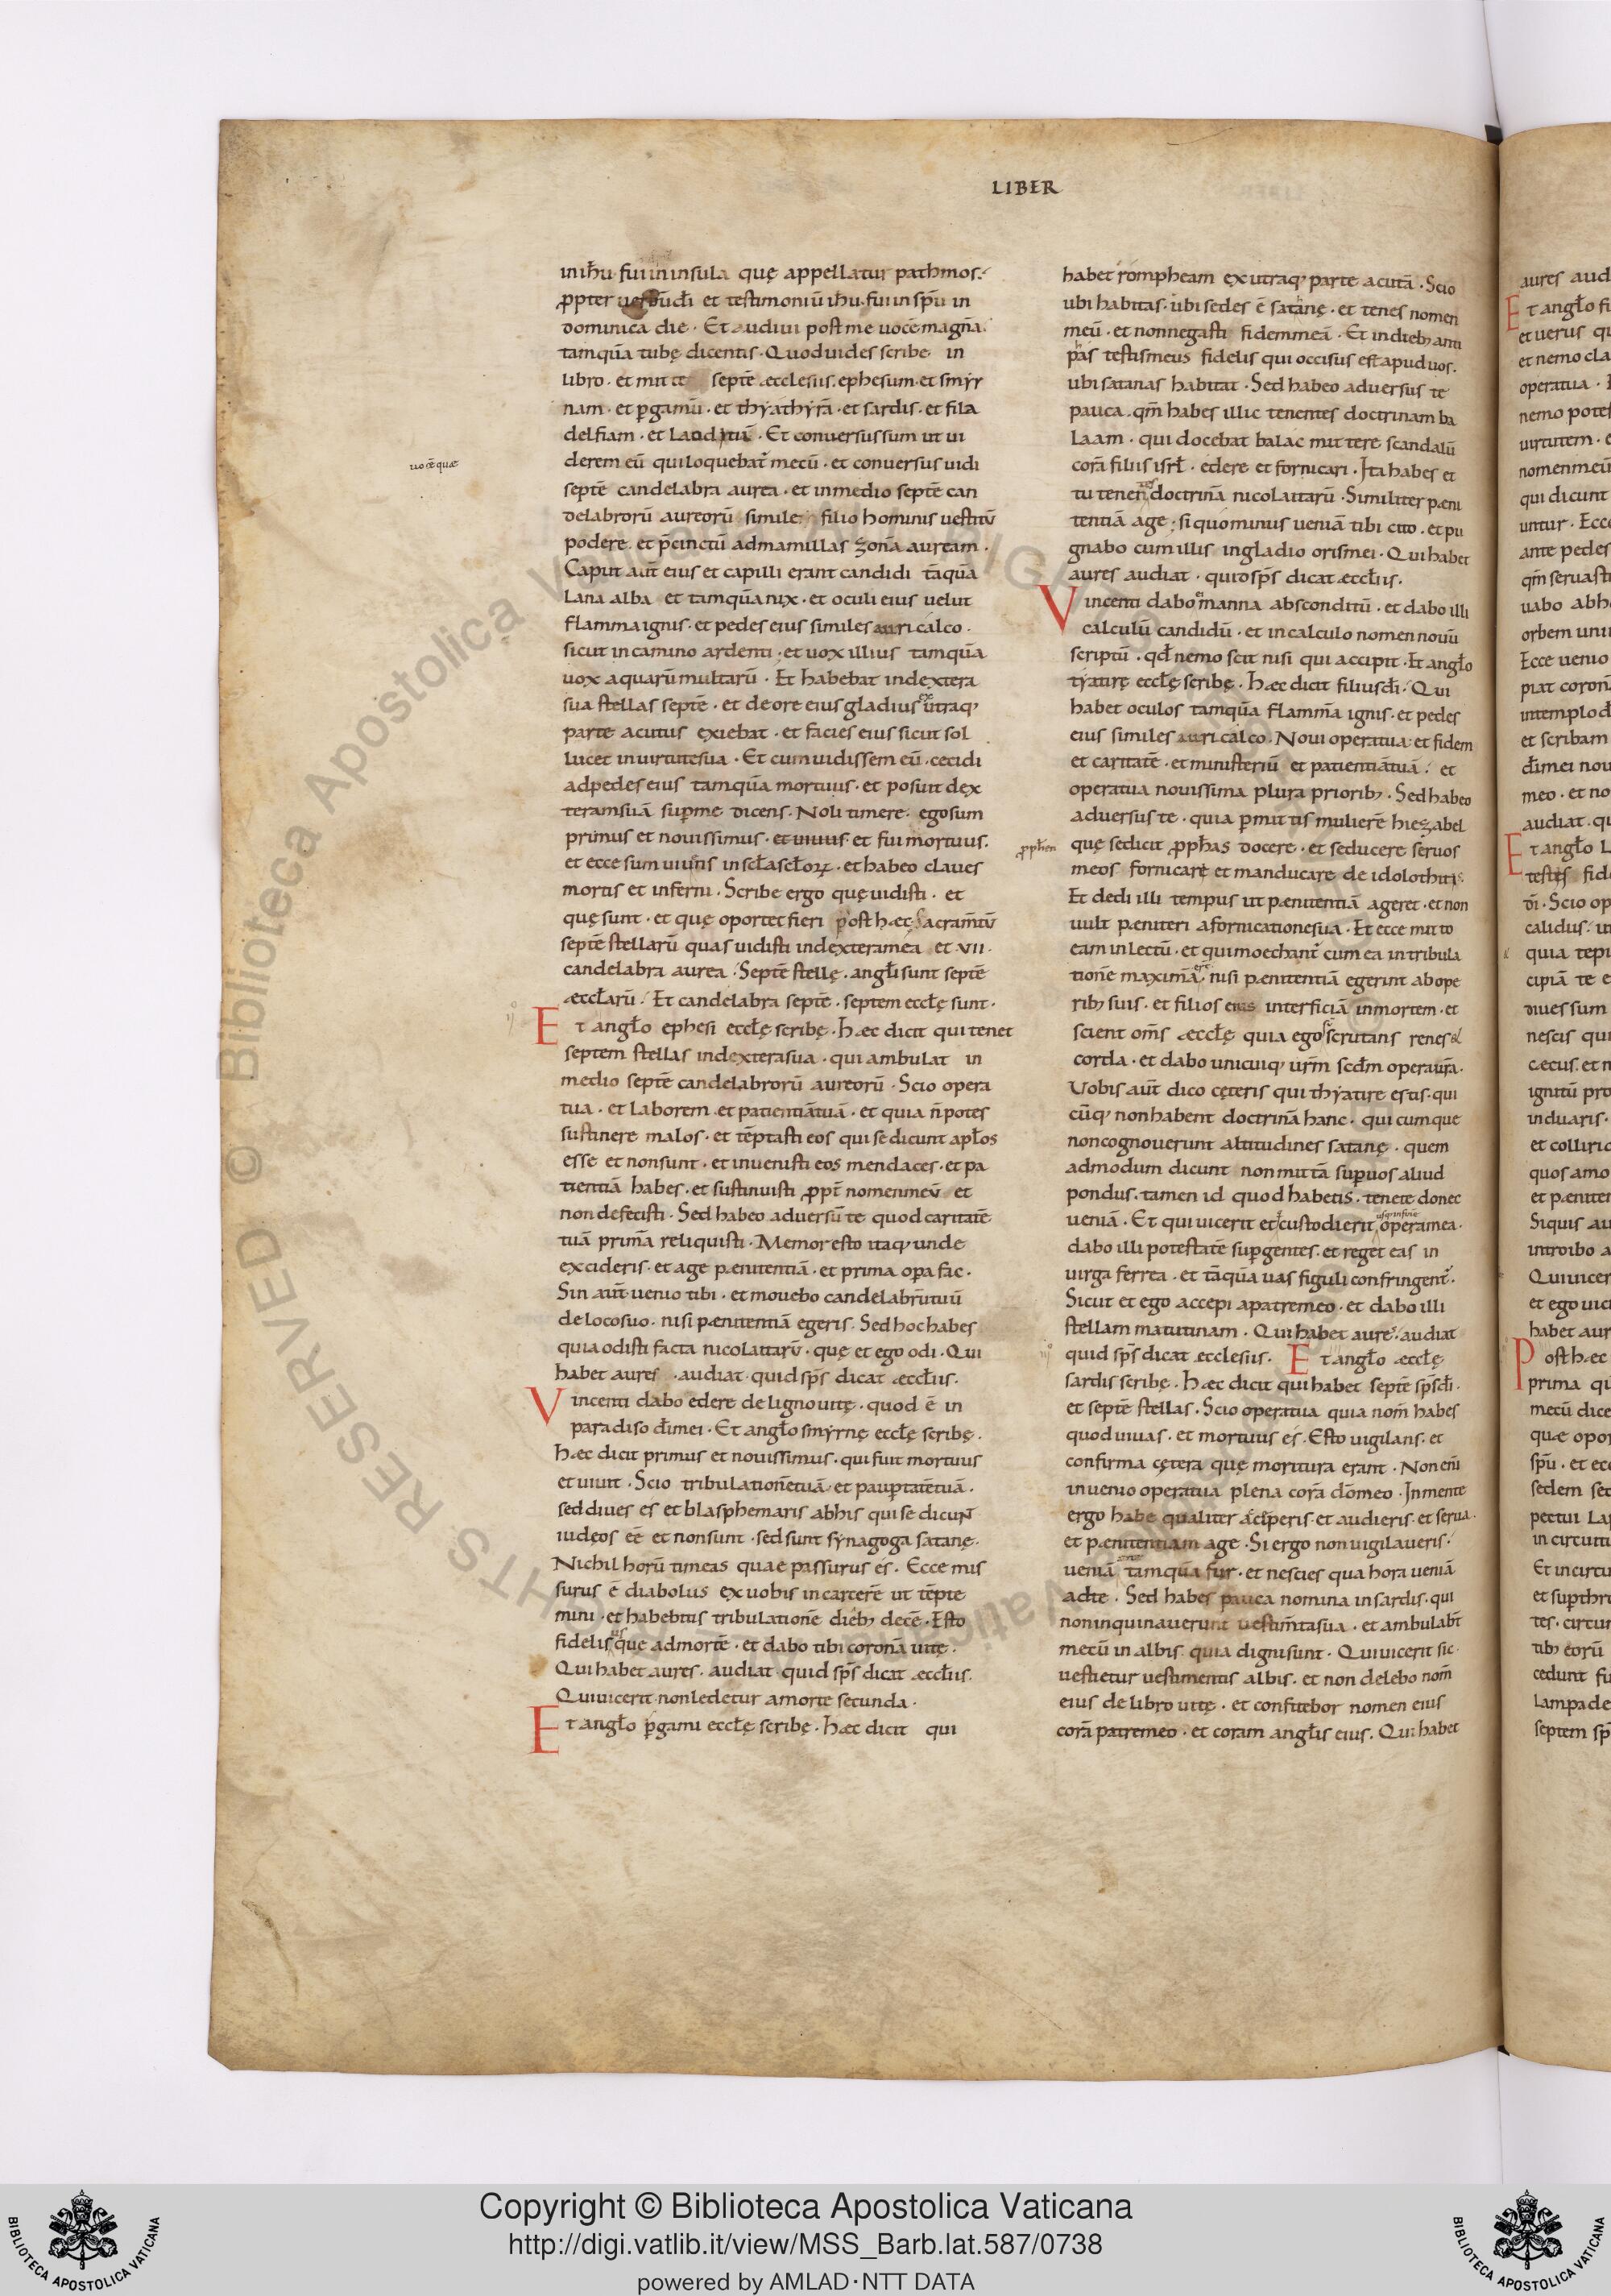 LIBER
in ihu fui in insula quę appellatur pathmos.
ppter uerbū dī et testimoniū ihu. fui in spū in
dominica die. Et audiui post me uocē magnā.
tamquā tubę dicentis. Quod uides scribe in
libro. et mitte septē ęcclesiis. ephesum. et smyr
nam. et pgamū. et thyathyrā. et sardis. et fila
delfiam. et laoditiā. Et conuersus sum ut ui
uocē quæ
derem eū qui loquebat mecū. et conuersus uidi
septē candelabra aurea. et in medio septē can
delabrorū aureorū simile filio hominis uestitū
podere. et pcinctū ad mamillas zonā auream.
Caput aūt eius et capilli erant candidi tāquā
lana alba et tamquā nix. et oculi eius uelut
flamma ignis. et pedes eius similes auricalco.
sicut in camino ardenti. et uox illius tamquā
uox aquarū multarū. Et habebat in dextera
sua stellas septē. et de ore eius gladius ex utraq;
parte acutus exiebat. et facies eius sicut sol
lucet in uirtute sua. Et cum uidissem eū. cecidi
ad pedes eius tamquā mortuus. et posuit dex
teram suā sup me dicens. Noli timere. ego sum
primus et nouissimus. et uiuus. et fui mortuus.
et ecce sum uiuens in scła scłorꝝ. et habeo claues
mortis et inferni. Scribe ergo quę uidisti. et
quę sunt. et quę oportet fieri post hęc. Sacramtū
septē stellarū quas uidisti in dextera mea et VII.
candelabra aurea. Septē stellę. angli sunt septē
æccłarū. Et candelabra septē. septem eccłę sunt.
Et angło ephesi eccłę scribę. Hæc dicit qui tenet
septem stellas in dextera sua. qui ambulat in
medio septē candelabrorū aureorū. Scio opera
tua. et laborem. et patientiā tuā. et quia ñ potes
sustinere malos. et tēptasti eos qui se dicunt apłos
esse et non sunt. et inuenisti eos mendaces. et pa
tientiā habes. et sustinuisti ppt nomen meū et
non defecisti. Sed habeo aduersū te quod caritatē
tuā primā reliquisti. Memor esto itaq; unde
excideris. et age pænitentiā. et prima opa fac.
Sin aūt uenio tibi. et mouebo candelabrū tuū
de loco suo. nisi pænitentiā egeris. Sed hoc habes
quia odisti facta nicolaitarū. quę et ego odi. Qui
habet aures. audiat. quid sps dicat æccłiis.
Vincenti dabo edere de ligno uitę. quod ē in
paradiso dī mei. Et angło smyrnę eccłę scribę.
Hæc dicit primus et nouissimus. qui fuit mortuus
et uiuit. Scio tribulationē tuā. et paupertatē tuā.
sed diues es et blasphemaris ab his qui se dicunt
iudęos eē et non sunt. sed sunt synagoga satanę.
Nichil horū timeas quae passurus es. Ecce mis
surus ē diabolus ex uobis in carcerē ut tēpte
mini. et habebitis tribulationē dieb; decē. Esto
fidelis usque ad mortē. et dabo tibi coronā uitę.
Qui habet aures. audiat. quid sps dicat æccłiis.
Qui uicerit. non ledetur a morte secunda.
Et angło pgami eccłę scribę. Hæc dicit qui
habet rompheam ex utraq; parte acutā. Scio
ubi habitas. ubi sedes ē satanę. et tenes nomen
meū. et non negasti fidem meā. Et in dieb; anti
pas testis meus fidelis qui occisus est apud uos.
ubi satanas habitat. Sed habeo aduersus te
pauca. qm habes illic tenentes doctrinam ba
laam. qui docebat balac mittere scandalū
corā filiis isrł. edere et fornicari. Ita habes et
tu tenentes doctrinā nicolaitarū. Similiter pæni
tentiā age; si quominus ueniā tibi cito. et pu
gnabo cum illis in gladio oris mei. Qui habet
aures audiat. quid sps dicat æccłiis.
Vincenti dabo ei manna absconditū. et dabo illi
calculū candidū. et in calculo nomen nouū
scriptū. qd nemo scit nisi qui accipit. Et angło
tyatirę eccłę scribę. Hæc dicit filius dī. Qui
habet oculos tamquā flammā ignis. et pedes
eius similes auricalco. Noui opera tua. et fidem
et caritatē. et ministeriū et patientiā tuā. et
opera tua nouissima plura priorib;. Sed habeo
aduersus te. quia pmittis mulierē hiezabel
pphen
quę se dicit pphas docere. et seducere seruos
meos fornicare et manducare de idolothitis.
Et dedi illi tempus ut pænitentiā ageret. et non
uult pæniteri a fornicatione sua. Et ecce mitto
eam in lectū. et qui moechant cum ea in tribula
tione maximā. nisi pænitentiā egerint ab ope
rib; suis. et filios eius interficiā in mortem. et
scient oms æccłę quia ego scrutans renes
corda. et dabo unicuiq; urm scdm opera ura.
Vobis aūt dico cęteris qui thyatire estis. qui
cūq; non habent doctrinā hanc. qui cumque
non cognouerunt altitudines satanę. quem
admodum dicunt non mittā sup uos aliud
pondus. tamen id quod habetis. tenete donec
usq; in finē
ueniā. Et qui uicerit et custodierit opera mea.
dabo illi potestatē sup gentes. et reget eas in
uirga ferrea. et tāquā uas figuli confringent.
Sicut et ego accepi a patre meo. et dabo illi
stellam matutinam. Qui habet aures. audiat
quid sps dicat ęcclesiis. Et angło æccłę
sardis scribę. Hæc dicit qui habet septē sps dī.
et septē stellas. Scio opera tua quia nom habes
quod uiuas. et mortuus es. Esto uigilans. et
confirma cętera quę moritura erant. Non enī
inuenio opera tua plena corā dō meo. In mente
ergo habe qualiter acceperis. et audieris. et serua.
et pænitentiam age. Si ergo non uigilaueris.
ueniā tamquā fur. et nescies qua hora ueniā
ad te. Sed habes pauca nomina in sardis. qui
non inquinauerunt uestimta sua. et ambulabt
mecū in albis. quia digni sunt. Qui uicerit sic
uestietur uestimentis albis. et non delebo nom
eius de libro uitę. et confitebor nomen eius
corā patre meo. et coram anglis eius. Qui habet
Copyright © Biblioteca Apostolica Vaticana
http://digi.vatlib.it/view/MSS_Barb.lat.587/0738
powered by AMLAD·NTT DATA